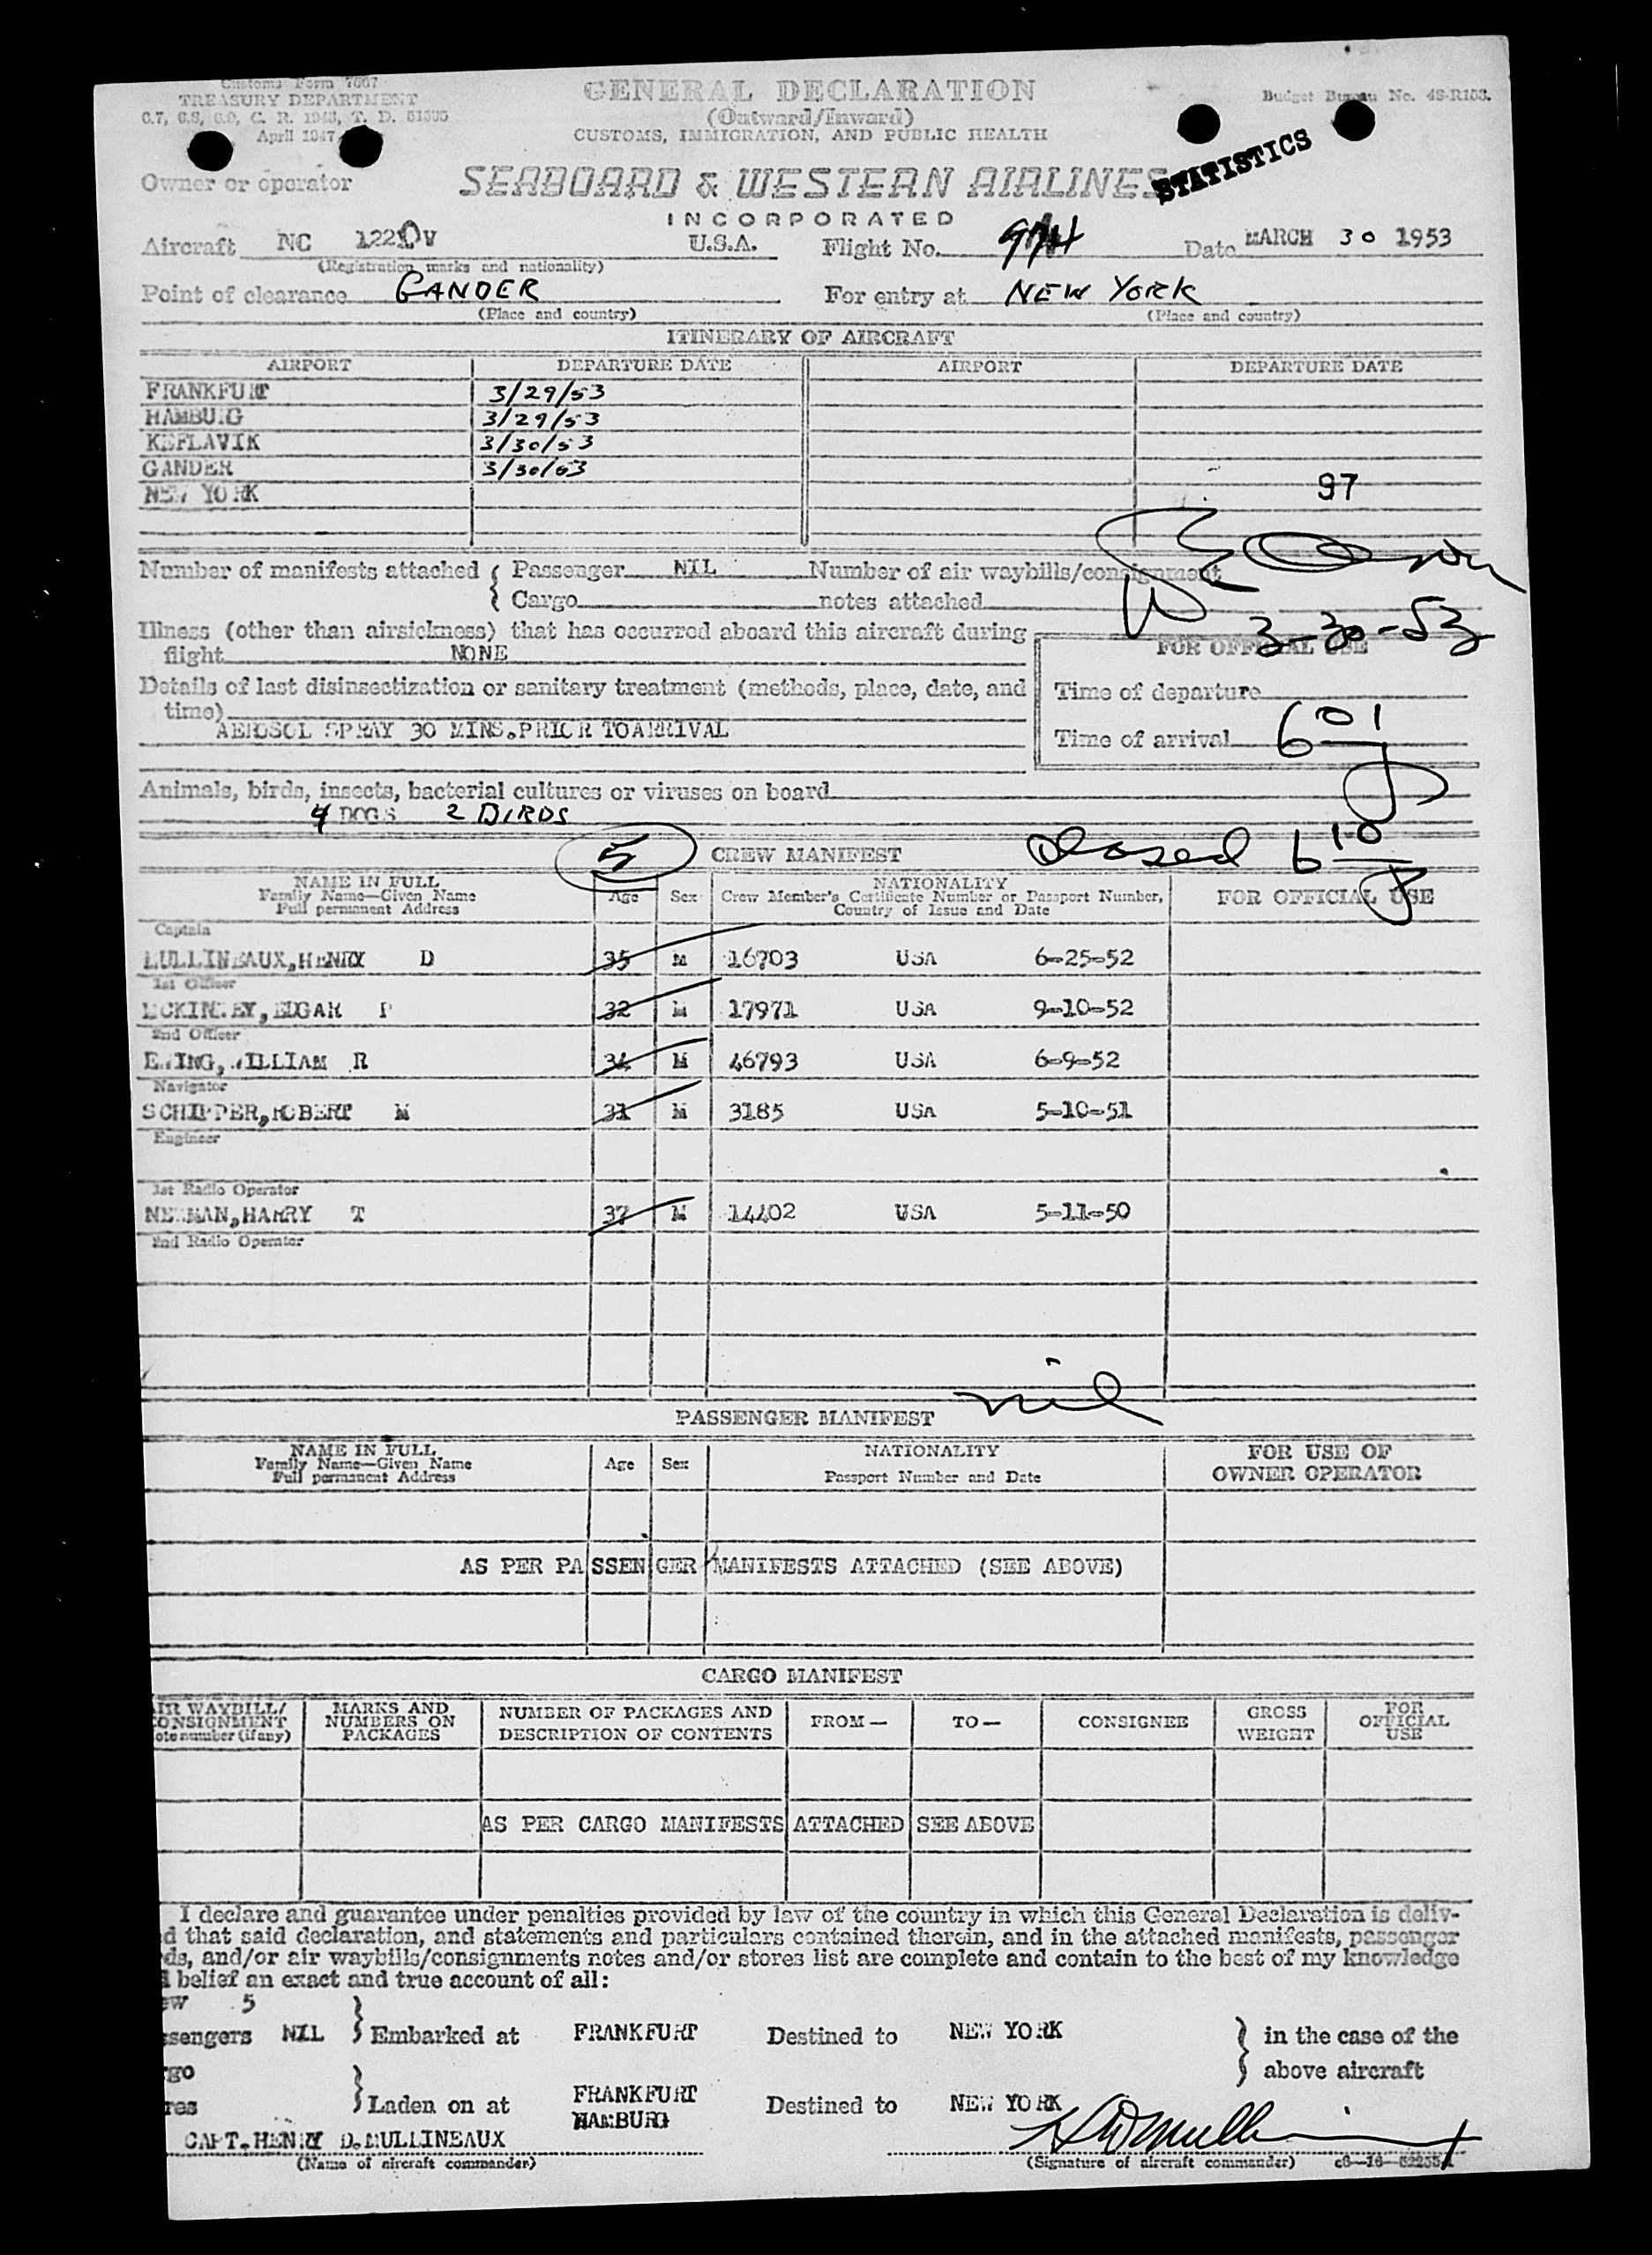 Customs Form 7507
TREASURY DEPARTMENT
April 1947
GENERAL DECLARATION
(Outward/Inward)
CUSTOMS, IMMIGRATION, AND PUBLIC HEALTH
Budget Bureau No.
STATISTICS
Owner or operator SEABOARD & WESTERN AIRLINES
INCORPORATED
Aircraft NC 1220V U.S.A. Flight No. Date MARCH 30 1953
(Registration marks and nationality)
Point of clearance GANDER For entry at NEW YORK
(Place and country) (Place and country)
ITINERARY OF AIRCRAFT
AIRPORT DEPARTURE DATE AIRPORT DEPARTURE DATE
FRANKFURT 3/29/53
HAMBURG 3/29/53
KEFLAVIK 3/30/53
GANDER 3/30/53
NEW YORK 97
Number of manifests attached { Passenger NIL Number of air waybills/consignment
Cargo notes attached
Illness (other than airsickness) that has occurred aboard this aircraft during
flight NONE
3-30-53
FOR OFFICIAL USE
Details of last disinsectization or sanitary treatment (methods, place, date, and
time)
AEROSOL SPRAY 30 MINS.PRIOR TOARRIVAL
Time of departure
Time of arrival 6 01
Animals, birds, insects, bacterial cultures or viruses on board
4 DOGS 2 BIRDS
5 CREW MANIFEST closed 6 10
NAME IN FULL
Family Name—Given Name
Full permanent Address
Age Sex
NATIONALITY
Crew Member's Certificate Number or Passport Number,
Country of Issue and Date
FOR OFFICIAL USE
Captain
MULLINEAUX,HENRY D 35 M 16703 USA 6-25-52
1st Officer
MCKINLEY,EDGAR P 32 M 17971 USA 9-10-52
2nd Officer
EWING,WILLIAM R 34 M 46793 USA 6-9-52
Navigator
SCHIPPER,ROBERT M 31 M 3185 USA 5-10-51
Engineer
1st Radio Operator
NEWMAN,HARRY T 37 M 14402 USA 5-11-50
2nd Radio Operator
nil
PASSENGER MANIFEST
NAME IN FULL
Family Name—Given Name
Full permanent Address
Age Sex
NATIONALITY
Passport Number and Date
FOR USE OF
OWNER OPERATOR
AS PER PASSENGER MANIFESTS ATTACHED (SEE ABOVE)
CARGO MANIFEST
AIR WAYBILL/
CONSIGNMENT
note number (if any)
MARKS AND
NUMBERS ON
PACKAGES
NUMBER OF PACKAGES AND
DESCRIPTION OF CONTENTS
FROM—
TO—
CONSIGNEE
GROSS
WEIGHT
FOR
OFFICIAL
USE
AS PER CARGO MANIFESTS ATTACHED SEE ABOVE
I declare and guarantee under penalties provided by law of the country in which this General Declaration is deliv-
d that said declaration, and statements and particulars contained therein, and in the attached manifests, passenger
ds, and/or air waybills/consignments notes and/or stores list are complete and contain to the best of my knowledge
d belief an exact and true account of all:
ew 5
ssengers NIL } Embarked at FRANKFURT Destined to NEW YORK } in the case of the
above aircraft
rgo
res } Laden on at FRANKFURT
HAMBURG Destined to NEW YORK
CAPT.HENRY D.MULLINEAUX
(Name of aircraft commander) (Signature of aircraft commander)